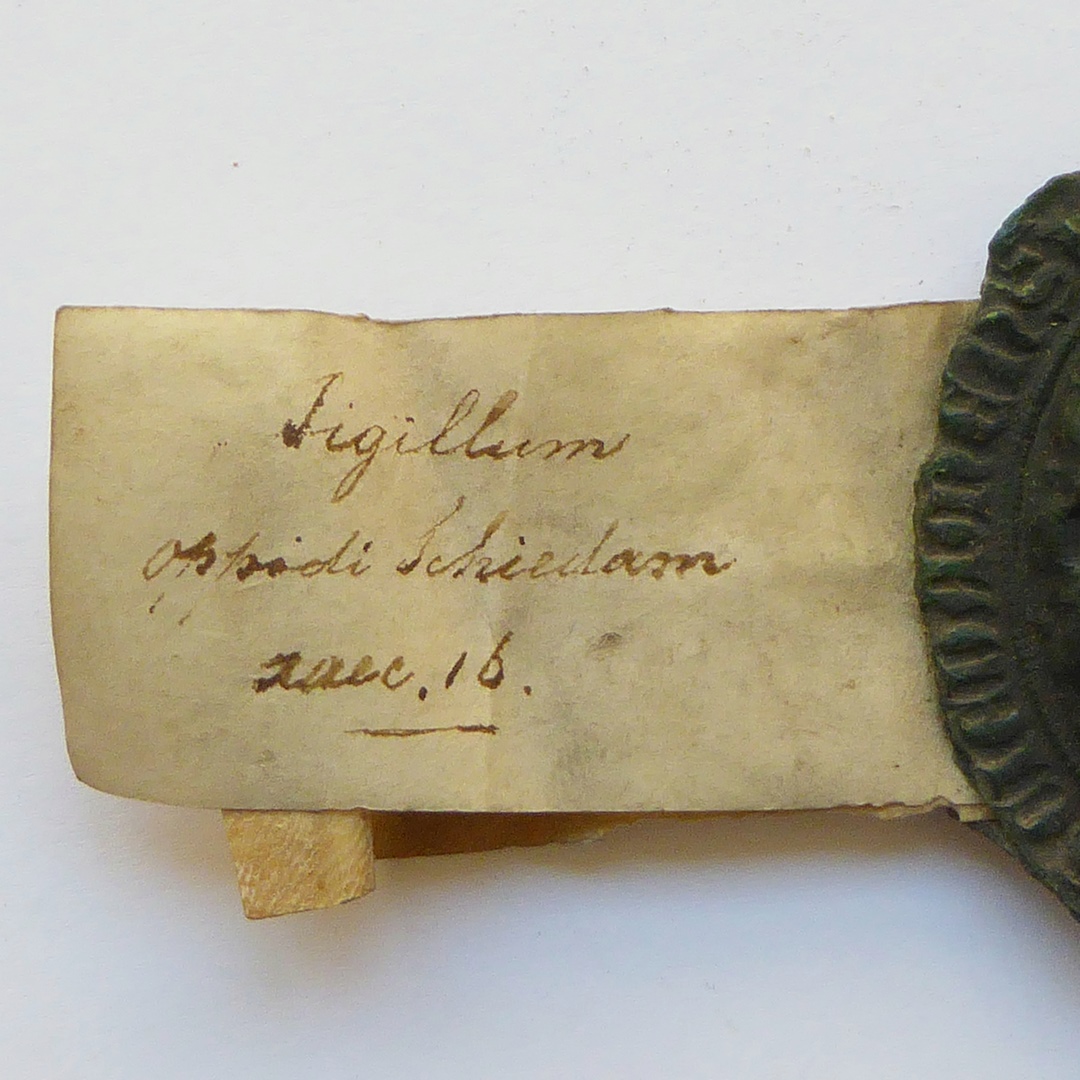 Sigillum
oppidi Schiedam
saec. 16.